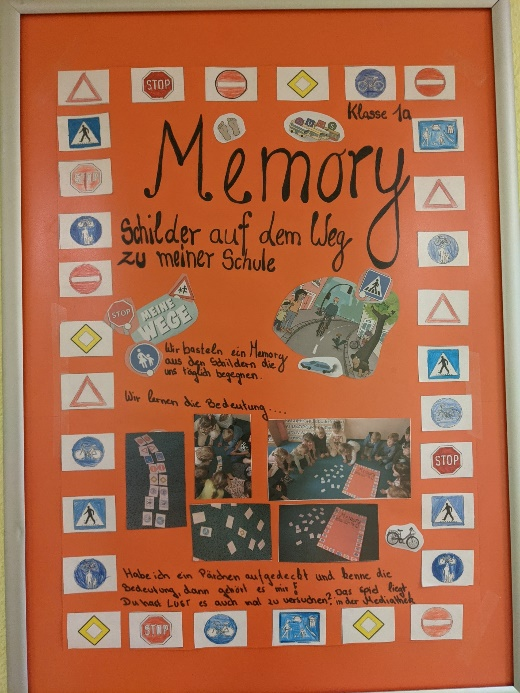 STOP
Klasse 1a
Memory
Schilder auf dem Weg
zu meiner Schule
STOP
STOP
MEINE
WEGE
Wir basteln ein Memory
aus den Schildern die
uns täglich begegnen.
Wir lernen die Bedeutung....
STOP
Habe ich ein Pärchen aufgedeckt und kenne die
Bedeutung, dann gehört es mir!
Du hast LUST es auch mal zu versuchen? Das Spiel liegt
in der Mediathek
STOP